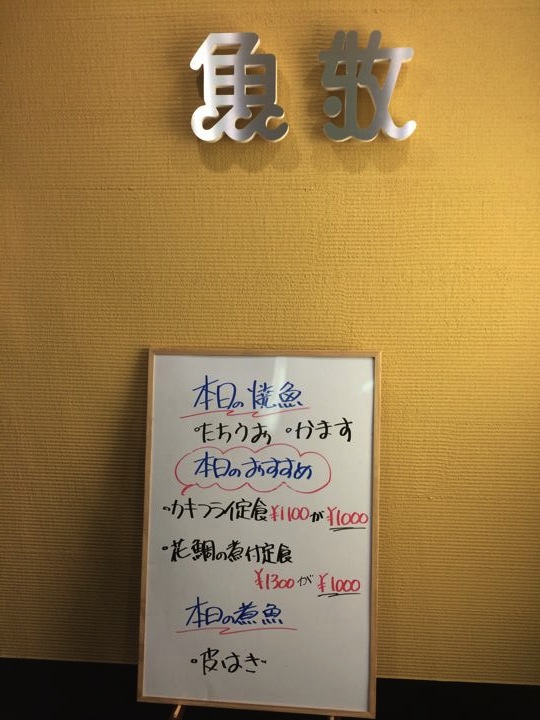 魚敬
本日の焼魚
・たちうお ・かます
本日のおすすめ
・カキフライ定食¥1100が¥1000
・花鯛の煮付定食
¥1300が¥1000
本日の煮魚
・皮はぎ